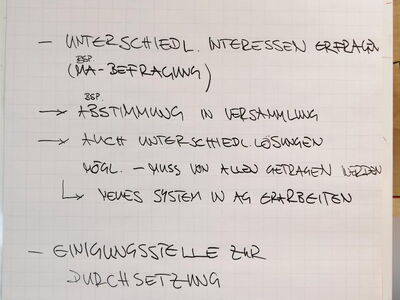 – UNTERSCHIEDL. INTERESSEN ERFRAGEN
BSP.
(MA-BEFRAGUNG)
BSP.
→ ABSTIMMUNG IN VERSAMMLUNG
→ AUCH UNTERSCHIEDL. LÖSUNGEN
MÖGL. – MUSS VON ALLEN GETRAGEN WERDEN
↳ NEUES SYSTEM IN AG ERARBEITEN
– EINIGUNGSSTELLE ZUR
DURCHSETZUNG